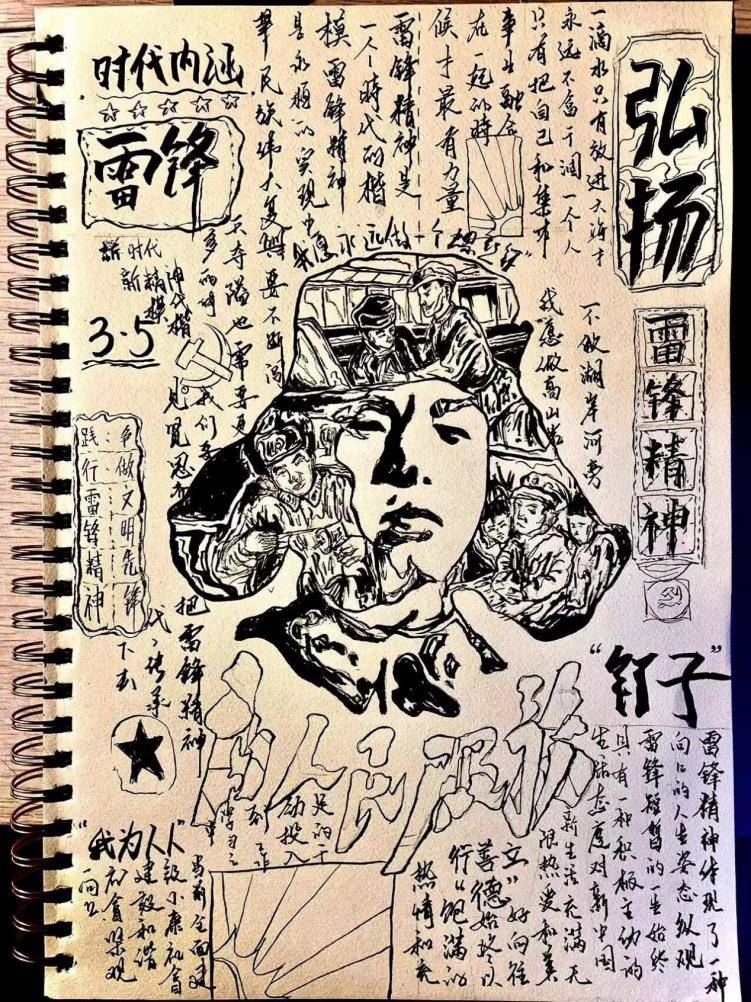 弘扬
一滴水只有放进大海才
永远不会干涸一个人
只有把自己和集体
事业融合
在一起的时
候才最有力量
雷锋精神是
一个時代的楷
模雷锋精神
是永恒的实现中
華民族伟大复興要不断闯
时代内涵
雷锋
新时代
新精神
3·5
我愿永远做一个
不做湖岸河旁
我愿做高山岩
雷锋精神
争做文明先锋
践行雷锋精神
也需要更
我们要
见贤思齐
把雷锋精神
代代传承
下去
“钉子”
为人民服务
雷锋精神体现了一种
向上的人生姿态纵观
雷锋短暂的一生始终
具有一种积极主动的
生活态度对新中国
新生活充满无
限热爱和美
好向往
立德
善始终以
行饱满的
热情和充
投入
学习
工作
“我为人人”
当前全面建
设小康社会
建设和谐
社会
向上